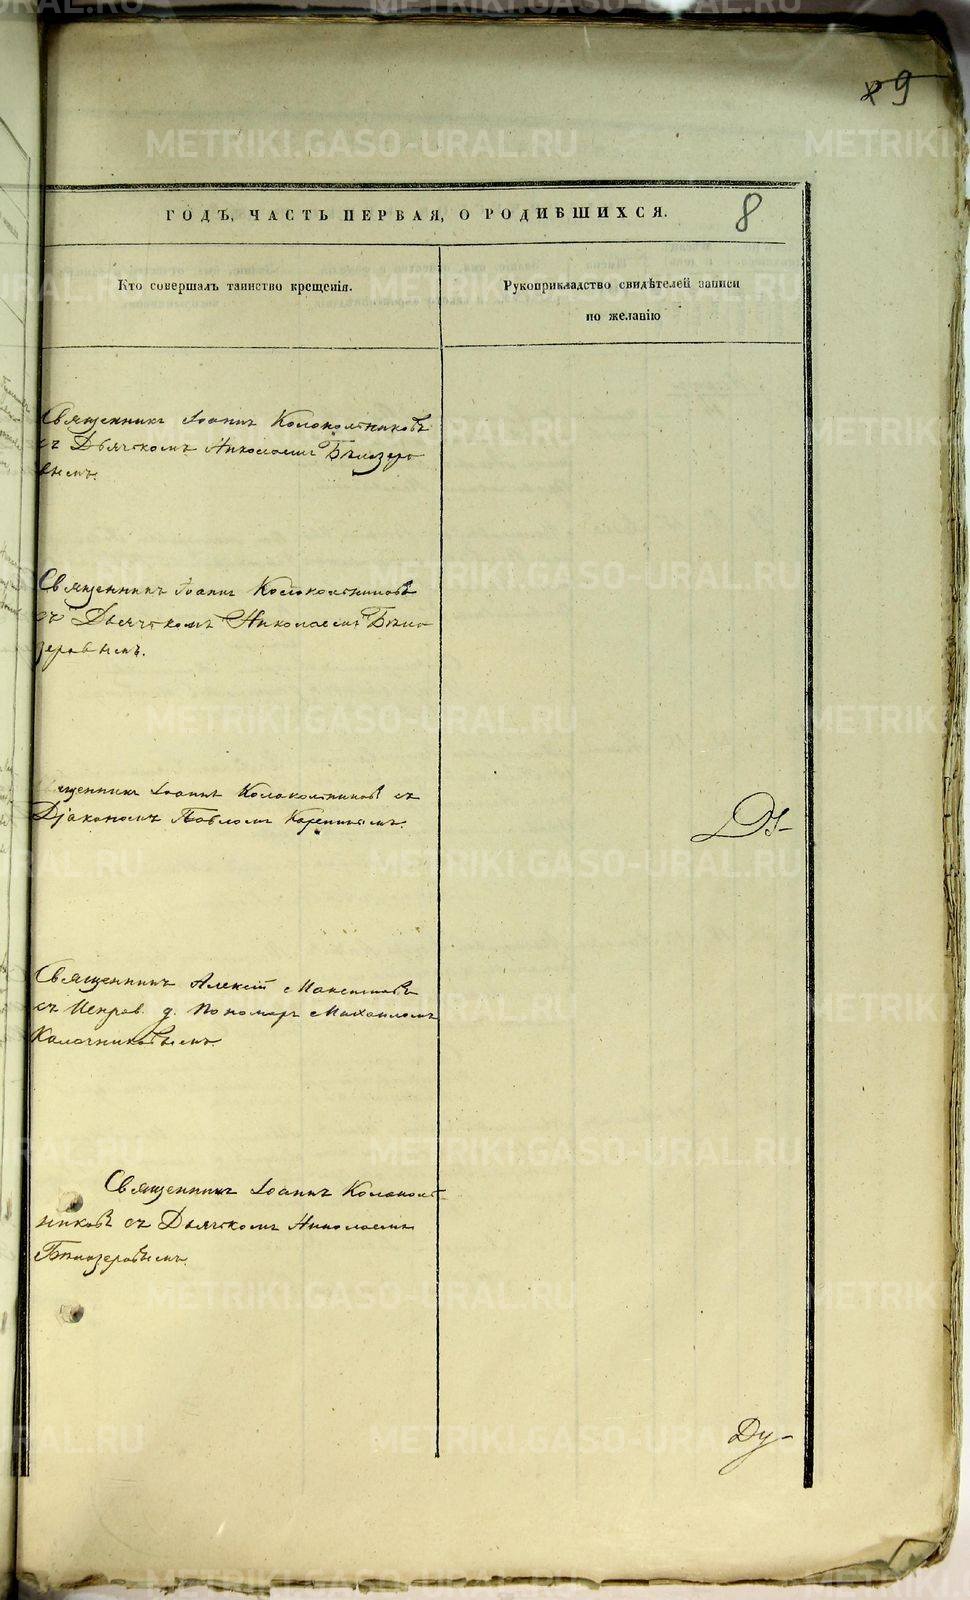 9
ГОДЪ, ЧАСТЬ ПЕРВАЯ, О РОДИВШИХСЯ.
8
Кто совершалъ таинство крещенія.
Рукоприкладство свидѣтелей записи
по желанію
Священникъ Іоаннъ Колокольниковъ
съ Дьячкомъ Николаемъ Бѣлозеро
вымъ.
Священникъ Іоаннъ Колокольниковъ
съ Дьячкомъ Николаемъ Бѣло
зеровымъ.
щенникъ Іоаннъ Колокольниковъ съ
Діакономъ Павломъ
Священникъ Алексій Максимовъ
съ Исправ. д. Пономаря Михаиломъ
Калачниковымъ.
Священникъ Іоаннъ Колоколь
никовъ съ Дьячкомъ Николаемъ
Бѣлозеровымъ.
Ду-
METRIKI.GASO-URAL.RU